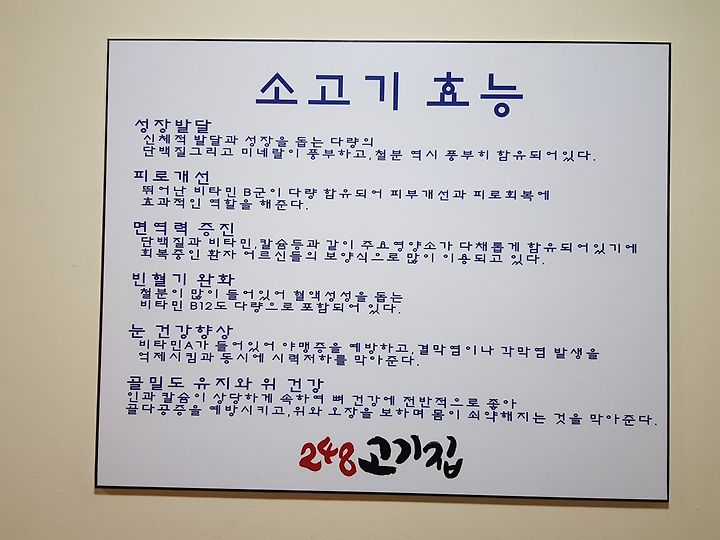 소고기 효능
성장발달
신체적 발달과 성장을 돕는 다량의
단백질그리고 미네랄이 풍부하고,철분 역시 풍부히 함유되어있다.
피로개선
뛰어난 비타민 B군이 다량 함유되어 피부개선과 피로회복에
효과적인 역할을 해준다.
면역력 증진
단백질과 비타민,칼슘등과 같이 주요영양소가 다채롭게 함유되어있기에
회복중인 환자 어르신들의 보양식으로 많이 이용되고 있다.
빈혈기 완화
철분이 많이 들어있어 혈액성성을 돕는
비타민 B12도 다량으로 포함되어 있다.
눈 건강향상
비타민A가 들어있어 야맹증을 예방하고,결막염이나 각막염 발생을
억제시킴과 동시에 시력저하를 막아준다.
골밀도 유지와 위 건강
인과 칼슘이 상당하게 속하여 뼈 건강에 전반적으로 좋아
골다공증을 예방시키고,위와 오장을 보하며 몸이 쇠약해지는 것을 막아준다.
248고기집